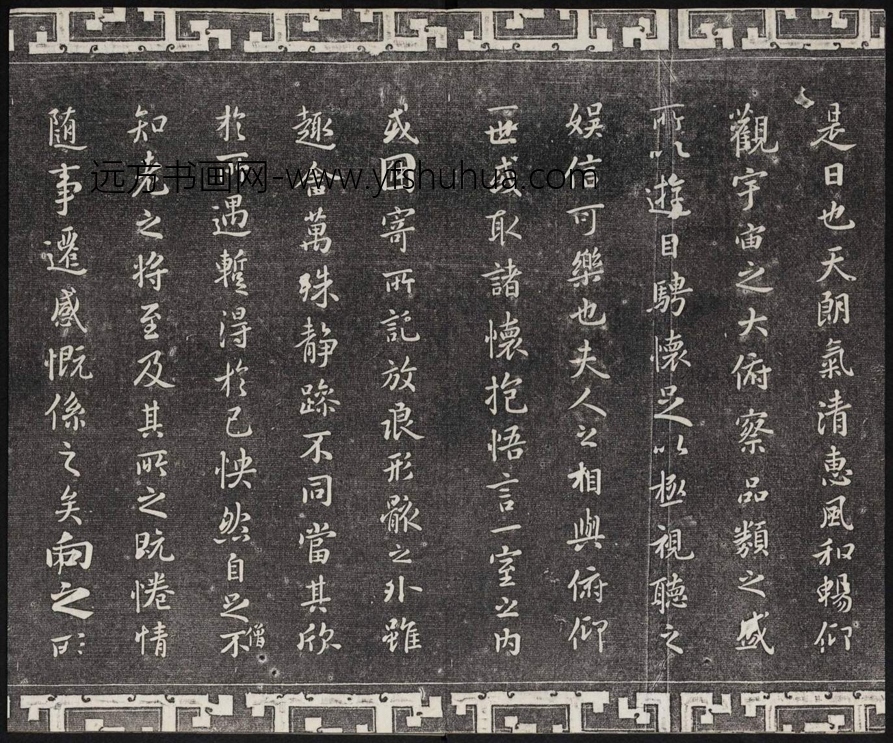 是日也天朗氣清惠風和暢仰
觀宇宙之大俯察品類之盛
所以遊目騁懷足以極視聽之
娛信可樂也夫人之相與俯仰
一世或取諸懷抱悟言一室之內
或因寄所託放浪形骸之外雖
趣舍萬殊静躁不同當其欣
於所遇蹔得於己怏然自足不
僧
知老之将至及其所之既惓情
随事遷感慨係之矣向之所
远方书画网-www.yfshuhua.com